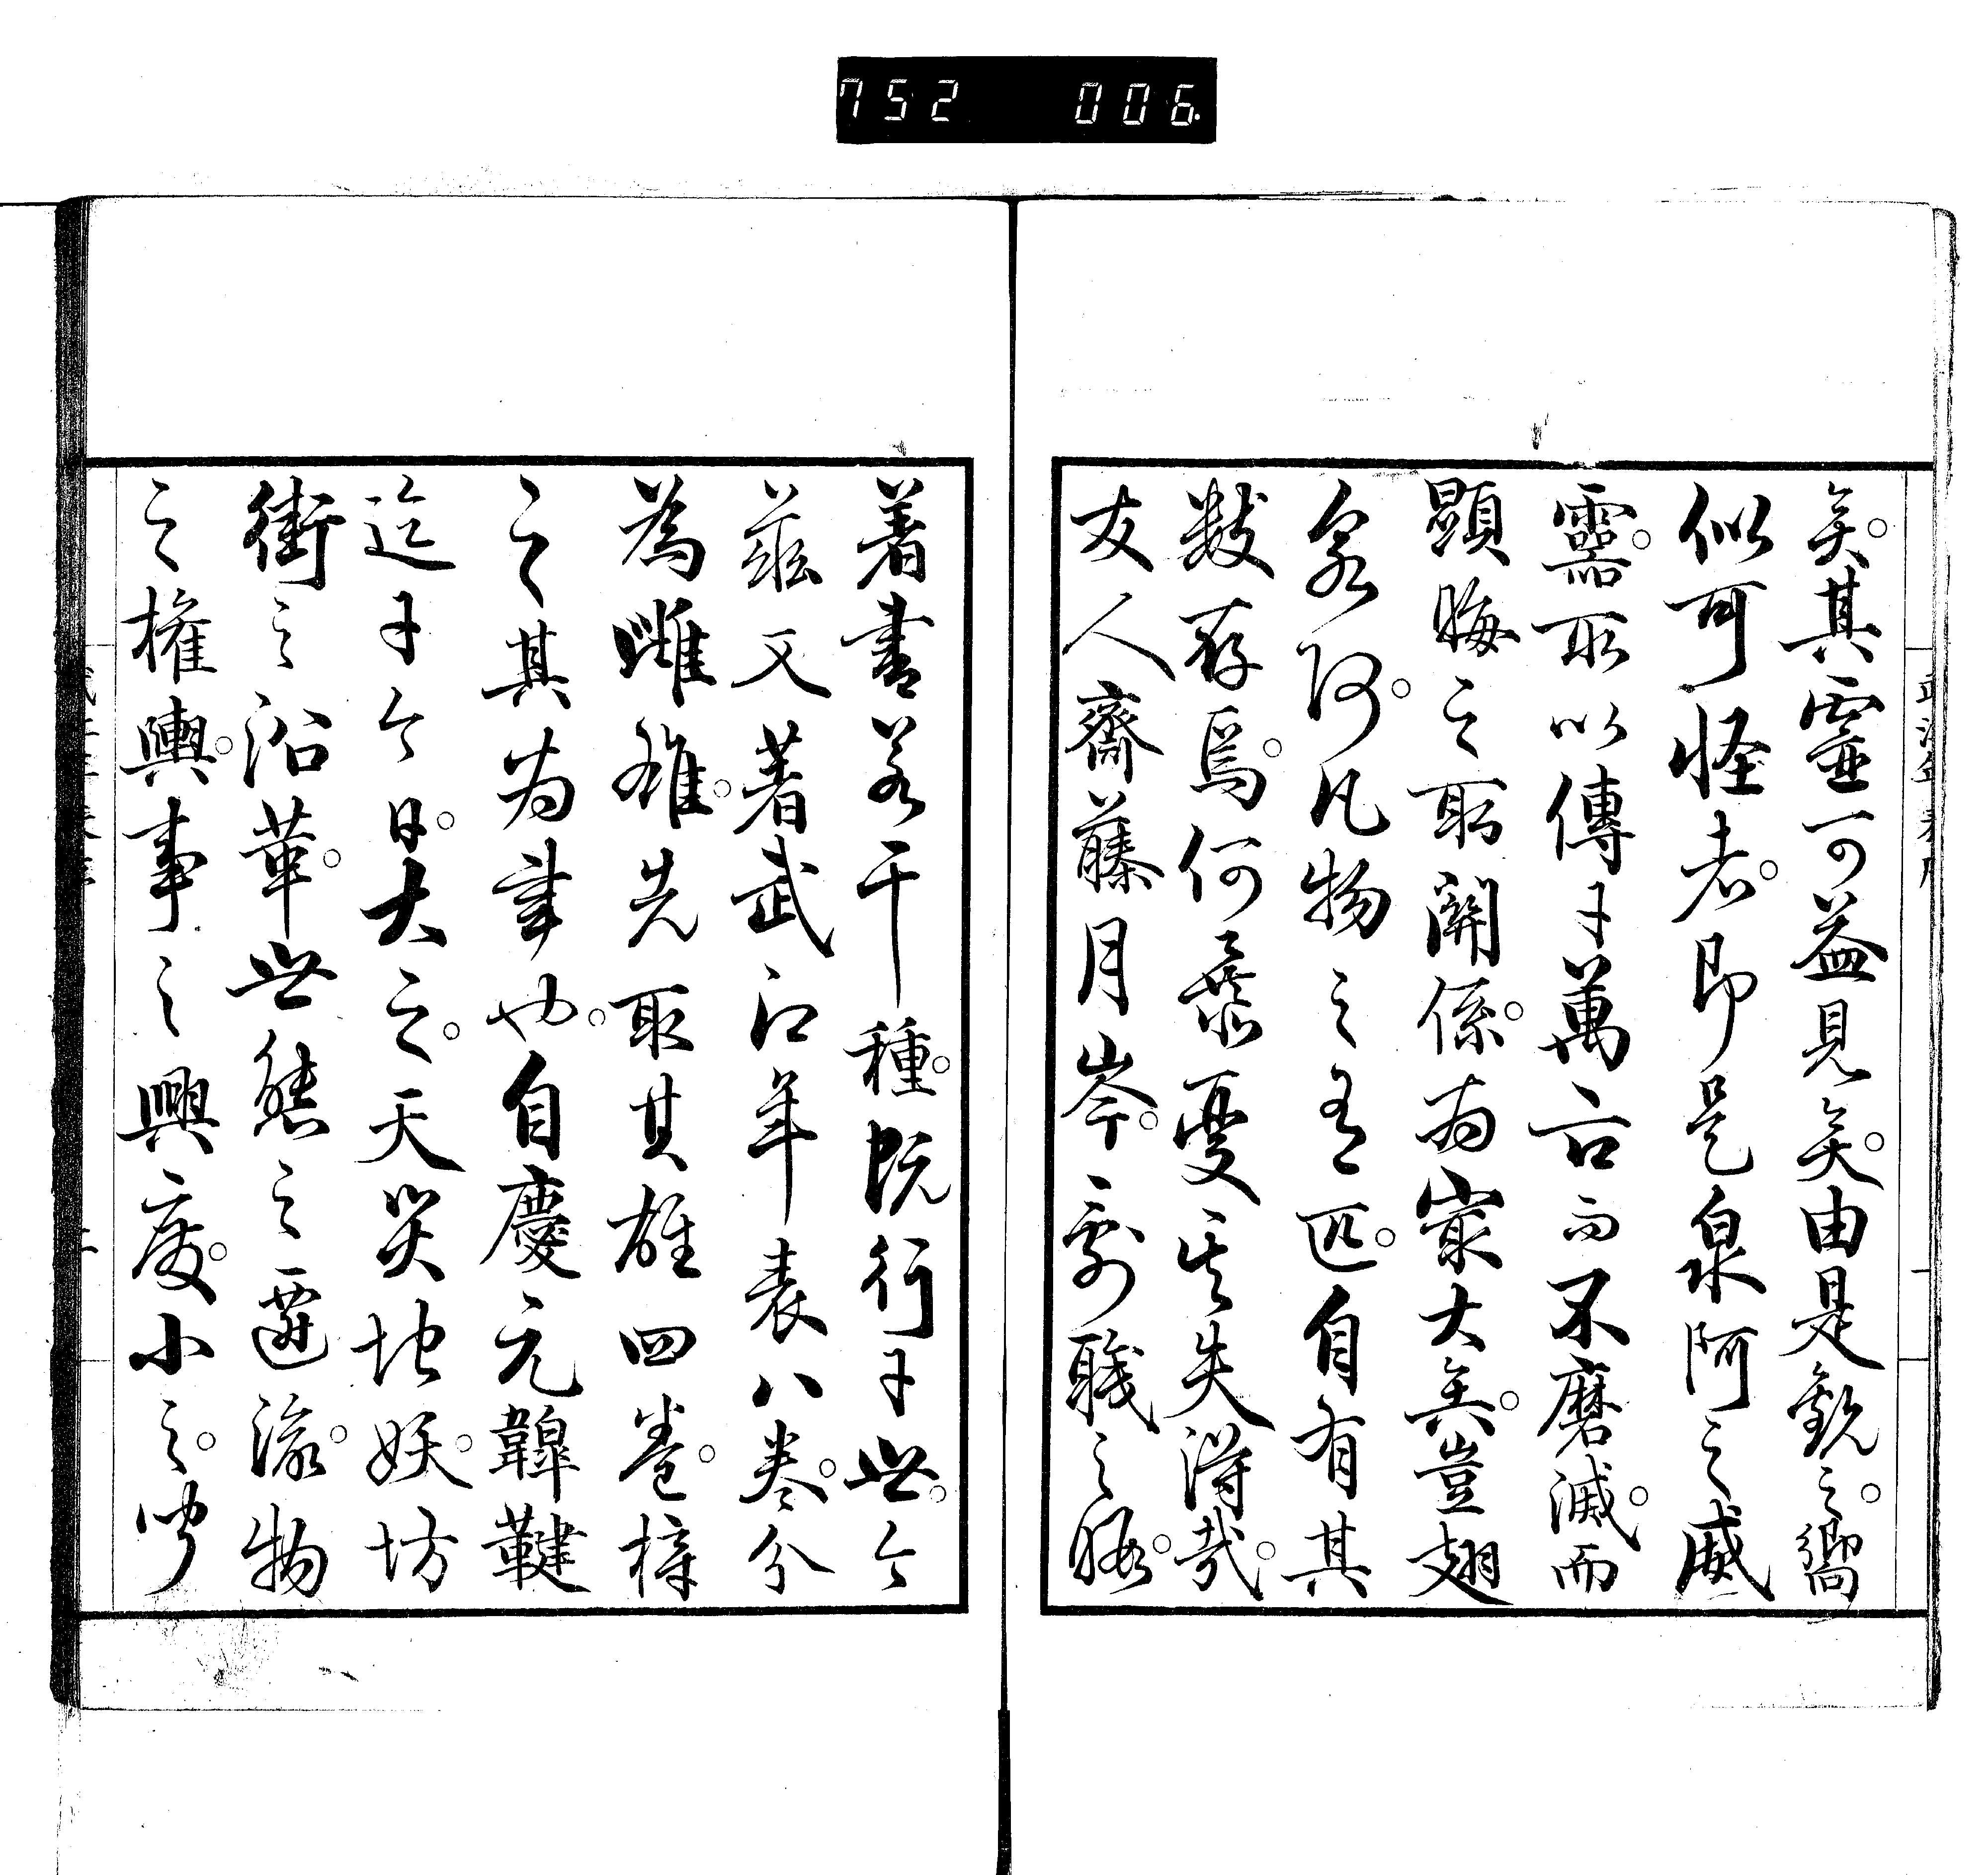 752 006
矣。其靈可益見矣。由是觀之。嚮
似可怪者。即是泉阿之威
靈。所以傳于萬古而不磨滅。而
顕晦之所關係。為最大矣。豈翅
泉阿。凡物之有匹。自有其
数存焉。何嘗憂其失得哉。
友人齋藤月岑。劇職之暇。
著書若干種。既行于世。今
茲又著武江年表八巻。分
為雌雄。先取其雄四巻梓
之。其為書也。自慶元韓鞬
迄于今日。大之。天災地妖。坊
街之沿革。世態之遷流。物
之権輿。事之興廃。小之。